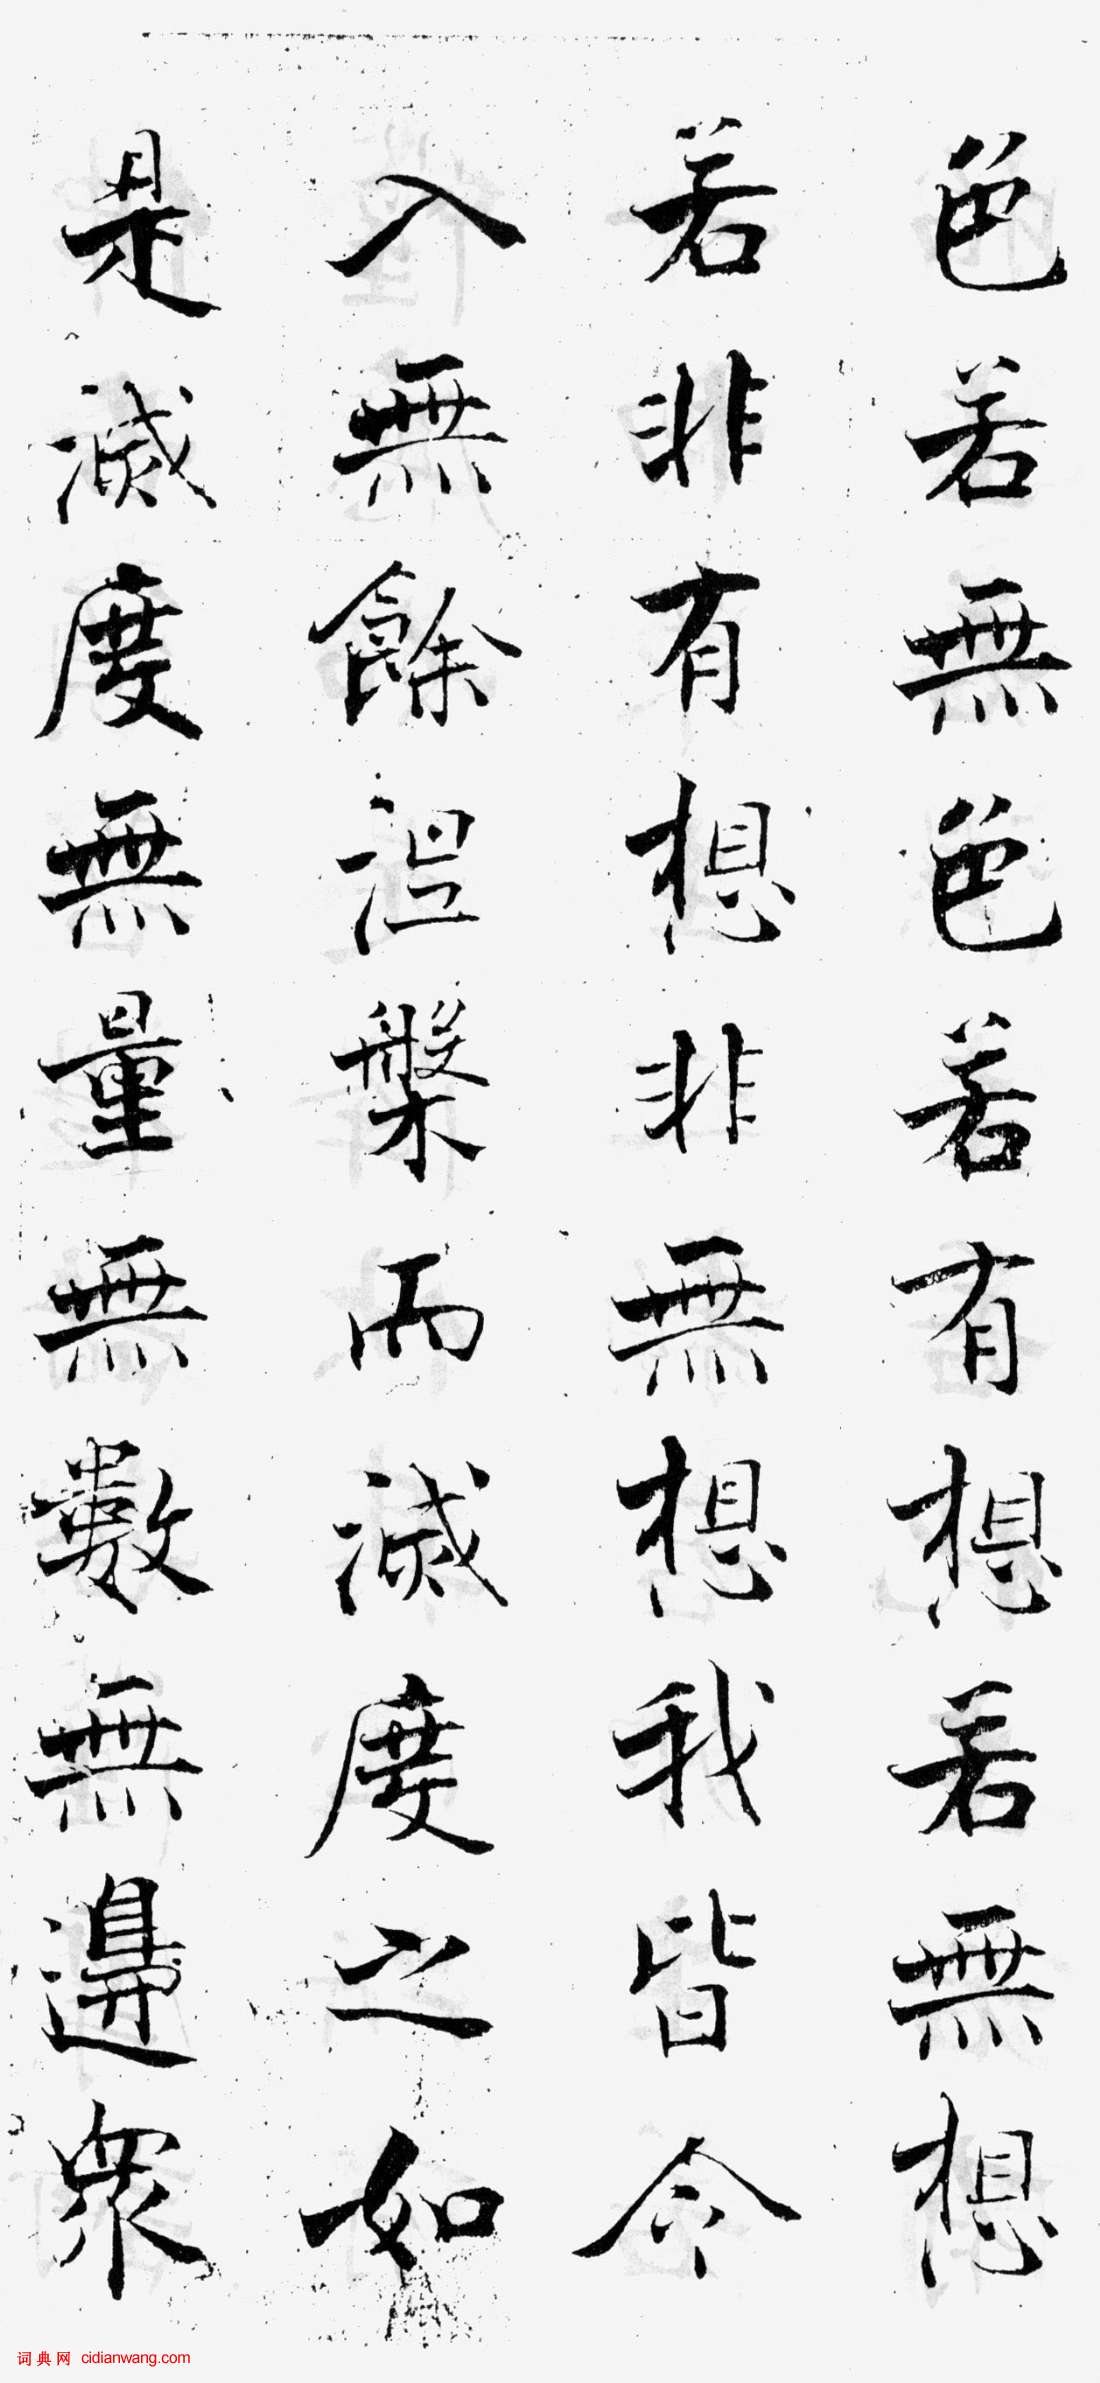 色若無色若有想若無想
若非有想非無想我皆令
入無餘涅槃而滅度之如
是滅度無量無數無邊衆
词典网 cidianwang.com